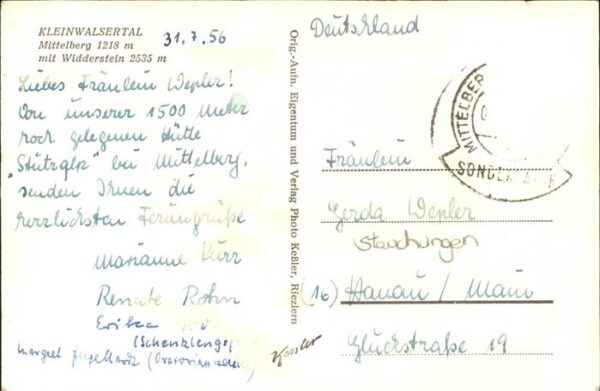 KLEINWALSERTAL
Mittelberg 1218 m
mit Widderstein 2535 m
31.7.56
Liebes Fräulein Wepler!
Von unserer 1500 Meter
hoch gelegenen Hütte
"Stutzalp" bei Mittelberg,
senden Ihnen die
herzlichsten Feriengrüße
Marianne Kurr
Renate
Erika
(Schenkleng
Margret
Kessler
Orig.-Aufn. Eigentum und Verlag Photo Keßler, Riezlern
Deutschland
MITTELBER
SONDER
Fräulein
Gerda Wepler
Stauchungen
(16) Hanau / Main
Glückstraße 19